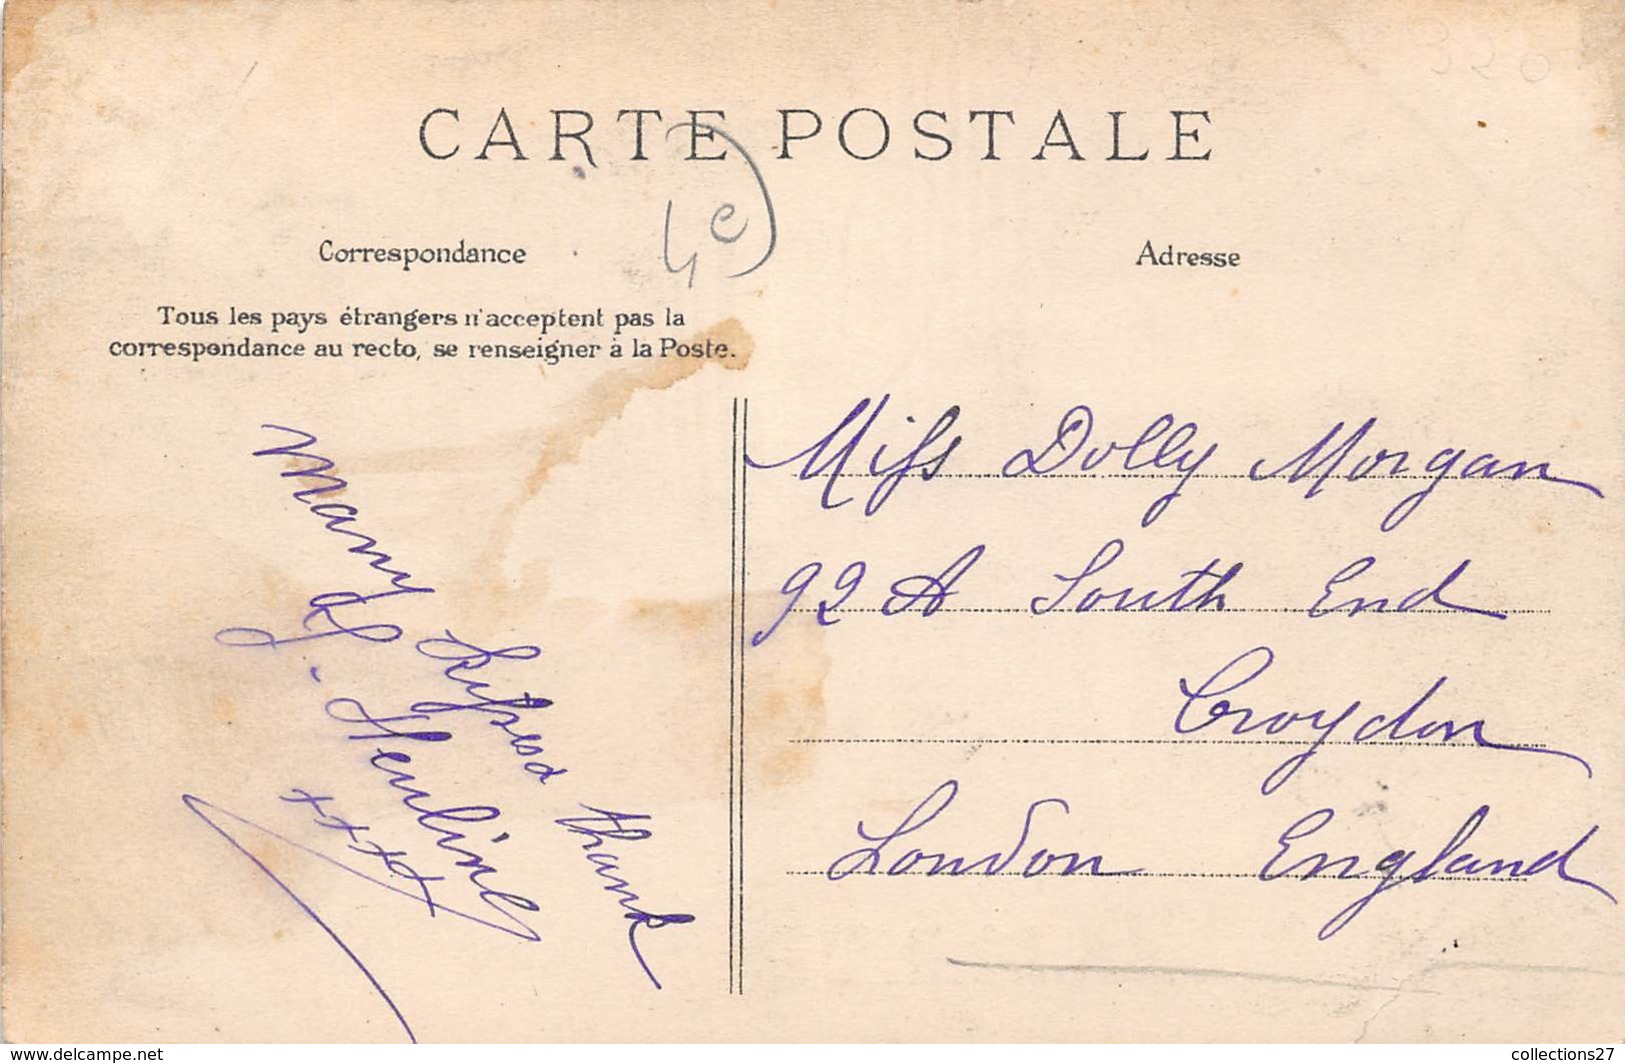 CARTE POSTALE
4e
Correspondance
Tous les pays étrangers n'acceptent pas la
correspondance au recto, se renseigner à la Poste.
Many thank
Adresse
Miss Dolly Morgan
92 A South End
Croydon
London England
320
www.delcampe.net
collections27